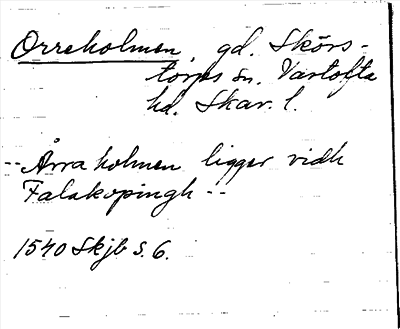 Orreholmen, gd. Skörs-
torps sn. Vartofta
hd. Skar. l.
-- Årraholmen ligger vidh
Falakopingh --
1540 Skjb s. 6.